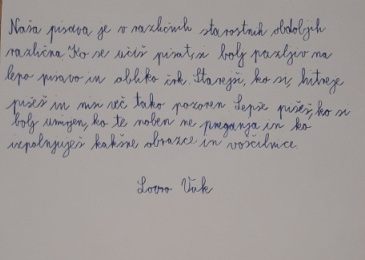 Naša pisava je v različnih starostnih obdobjih
različna. Ko se učiš pisat, si bolj pazljiv na
lepo pisavo in obliko črk. Starejši, ko si, hitreje
pišeš in nisi več tako pozoren. Lepše pišeš, ko si
bolj umirjen, ko te noben ne preganja in ko
izpolnjuješ kakšne obrazce in voščilnice.
Lovro Vuk